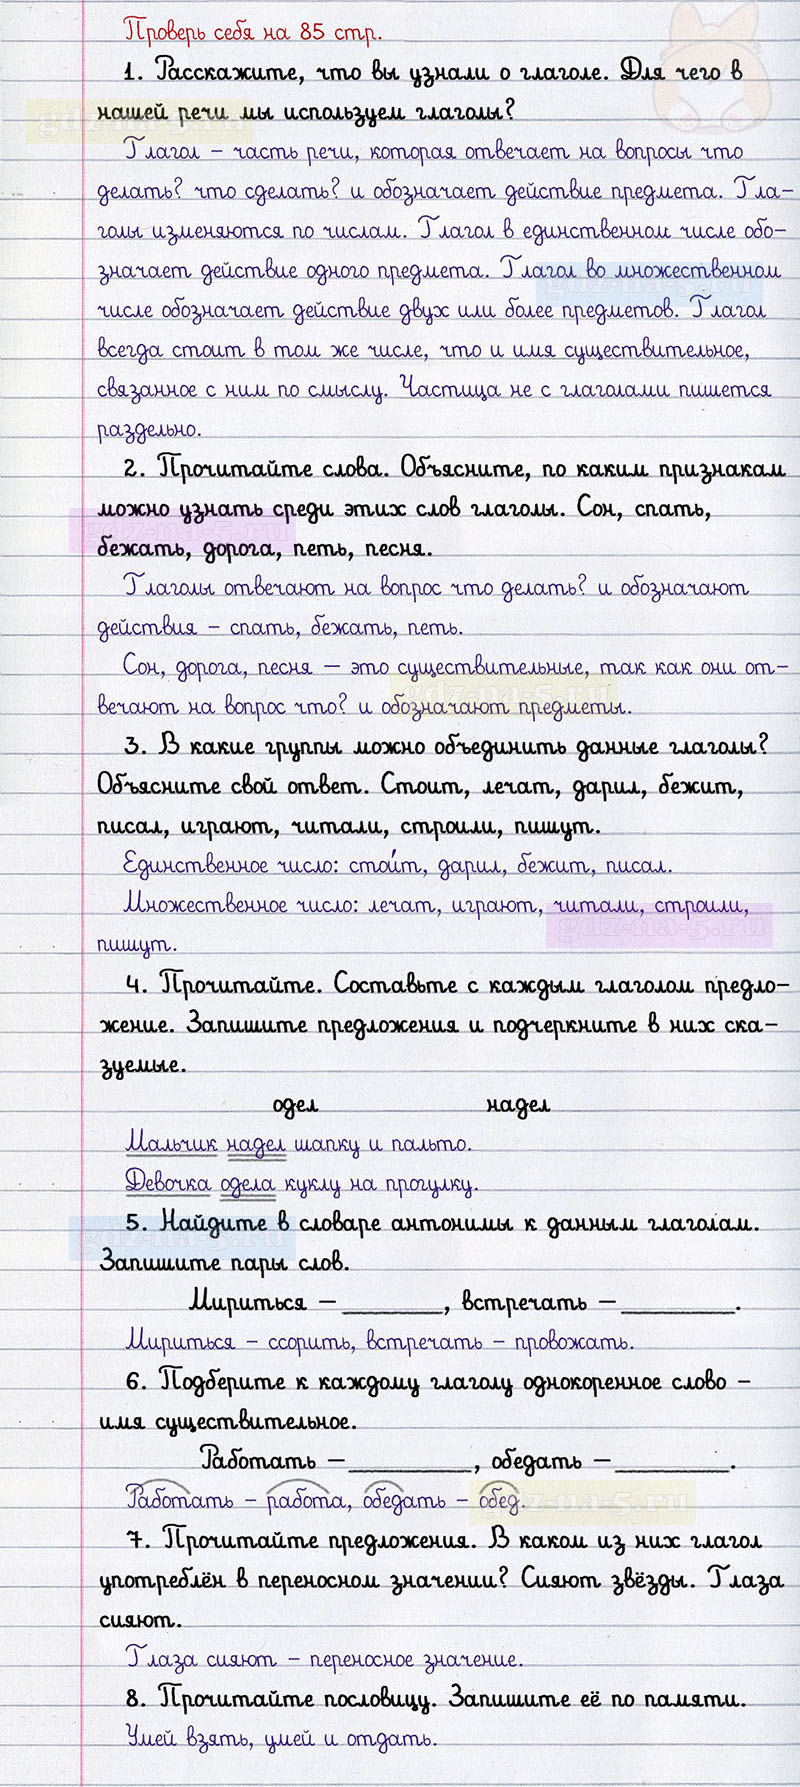 Проверь себя на 85 стр.
1. Расскажите, что вы узнали о глаголе. Для чего в
нашей речи мы используем глаголы?
gdz-na-5.ru
Глагол – часть речи, которая отвечает на вопросы что
делать? что сделать? и обозначает действие предмета. Гла-
голы изменяются по числам. Глагол в единственном числе обо-
значает действие одного предмета. Глагол во множественном
gdz-na-5.ru
числе обозначает действие двух или более предметов. Глагол
всегда стоит в том же числе, что и имя существительное,
связанное с ним по смыслу. Частица не с глаголами пишется
раздельно.
2. Прочитайте слова. Объясните, по каким признакам
можно узнать среди этих слов глаголы. Сон, спать,
gdz-na-5.ru
бежать, дорога, петь, песня.
Глаголы отвечают на вопрос что делать? и обозначают
действия – спать, бежать, петь.
Сон, дорога, песня — это существительные, так как они от-
gdz-na-5.ru
вечают на вопрос что? и обозначают предметы.
3. В какие группы можно объединить данные глаголы?
Объясните свой ответ. Стоит, лечат, дарил, бежит,
писал, играют, читали, строили, пишут.
Единственное число: стои́т, дарил, бежит, писал.
Множественное число: лечат, играют, читали, строили,
gdz-na-5.ru
пишут.
4. Прочитайте. Составьте с каждым глаголом предло-
жение. Запишите предложения и подчеркните в них ска-
зуемые.
одел надел
Мальчик надел шапку и пальто.
Девочка одела куклу на прогулку.
5. Найдите в словаре антонимы к данным глаголам.
gdz-na-5.ru
Запишите пары слов.
Мириться – ________, встречать – ________.
Мириться – ссорить, встречать – провожать.
6. Подберите к каждому глаголу однокоренное слово –
имя существительное.
Работать – ________, обедать – ________.
Работать – работа, обедать – обед.
gdz-na-5.ru
7. Прочитайте предложения. В каком из них глагол
употреблён в переносном значении? Сияют звёзды. Глаза
сияют.
Глаза сияют – переносное значение.
8. Прочитайте пословицу. Запишите её по памяти.
Умей взять, умей и отдать.